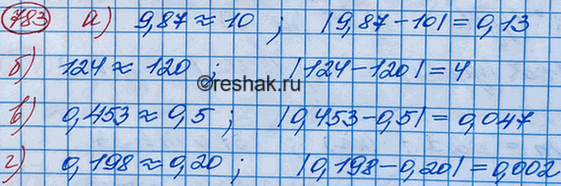 783 а) 9,87 ≈ 10 ; |9,87 - 10| = 0,13
б) 124 ≈ 120 ; |124 - 120| = 4
©reshak.ru
в) 0,453 ≈ 0,5 ; |0,453 - 0,5| = 0,047
г) 0,198 ≈ 0,20 ; |0,198 - 0,20| = 0,002